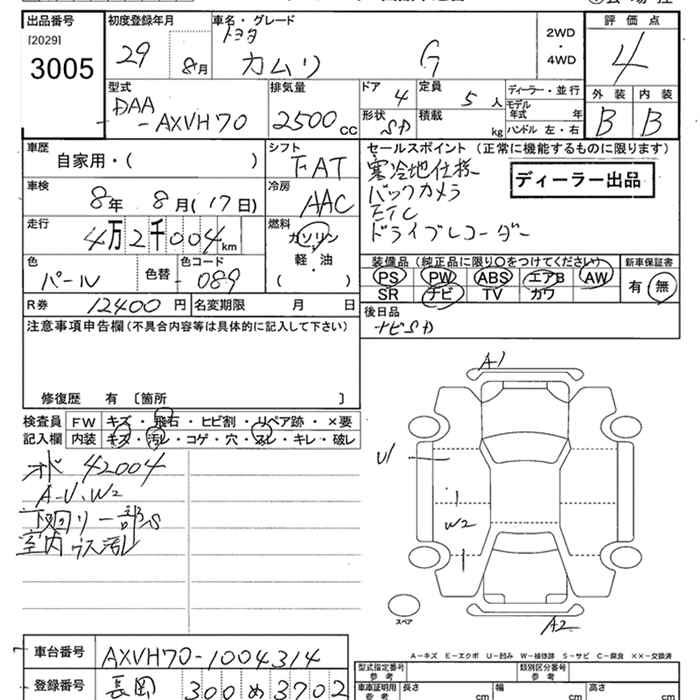 出品番号
[2029]
3005
初度登録年月
29 8月
車名・グレード
トヨタ
カムリ G
2WD
・
4WD
評価点
4
外装 内装
B B
型式
DAA
-AXVH70
排気量
2500cc
ドア 4
定員 5人
ディーラー・並行
形状 SD
積載 kg
モデル年式 年
ハンドル 左・右
車歴
自家用・( )
シフト
FAT
車検
8年 8月(17日)
冷房
AAC
走行
4万2千004km
燃料
ガソリン
軽・油
( )
色
パール
色替
色コード
089
R券 12400円
名変期限 月 日
セールスポイント (正常に機能するものに限ります)
寒冷地仕様
バックカメラ
ETC
ドライブレコーダー
ディーラー出品
装備品(純正品に限り○をつけてください)
新車保証書
PS PW ABS エアB AW
SR ナビ TV カワ
有・無
後日品
ナビSD
注意事項申告欄(不具合内容等は具体的に記入して下さい)
修復歴 有〔箇所 〕
検査員
記入欄
FW キズ・飛石・ヒビ割・リペア跡・×要
内装 キズ・汚レ・コゲ・穴・スレ・キレ・破レ
オド 42004
A-U、W2
下回り一部S
室内ウス汚レ
A1
U1
W2
A2
スペア
A-キズ E-エクボ U-凹み W-補修跡 S-サビ C-腐食 ××-交換済
車台番号 AXVH70-1004314
登録番号 長岡 300 め 3702
型式指定番号
参考
類別区分番号
参考
車庫証明用
参考
長さ cm
幅 cm
高さ cm